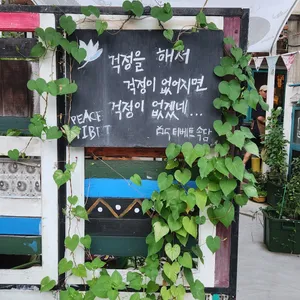 걱정을 해서
걱정이 없어지면
걱정이 없겠네...
티베트 속담
PEACE